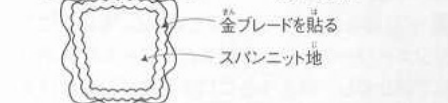 金ブレードを貼る
スパンニット地